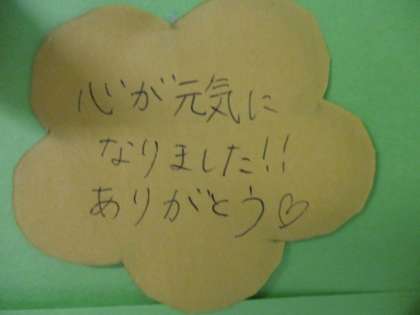 心が元気に
なりました!!
ありがとう♡